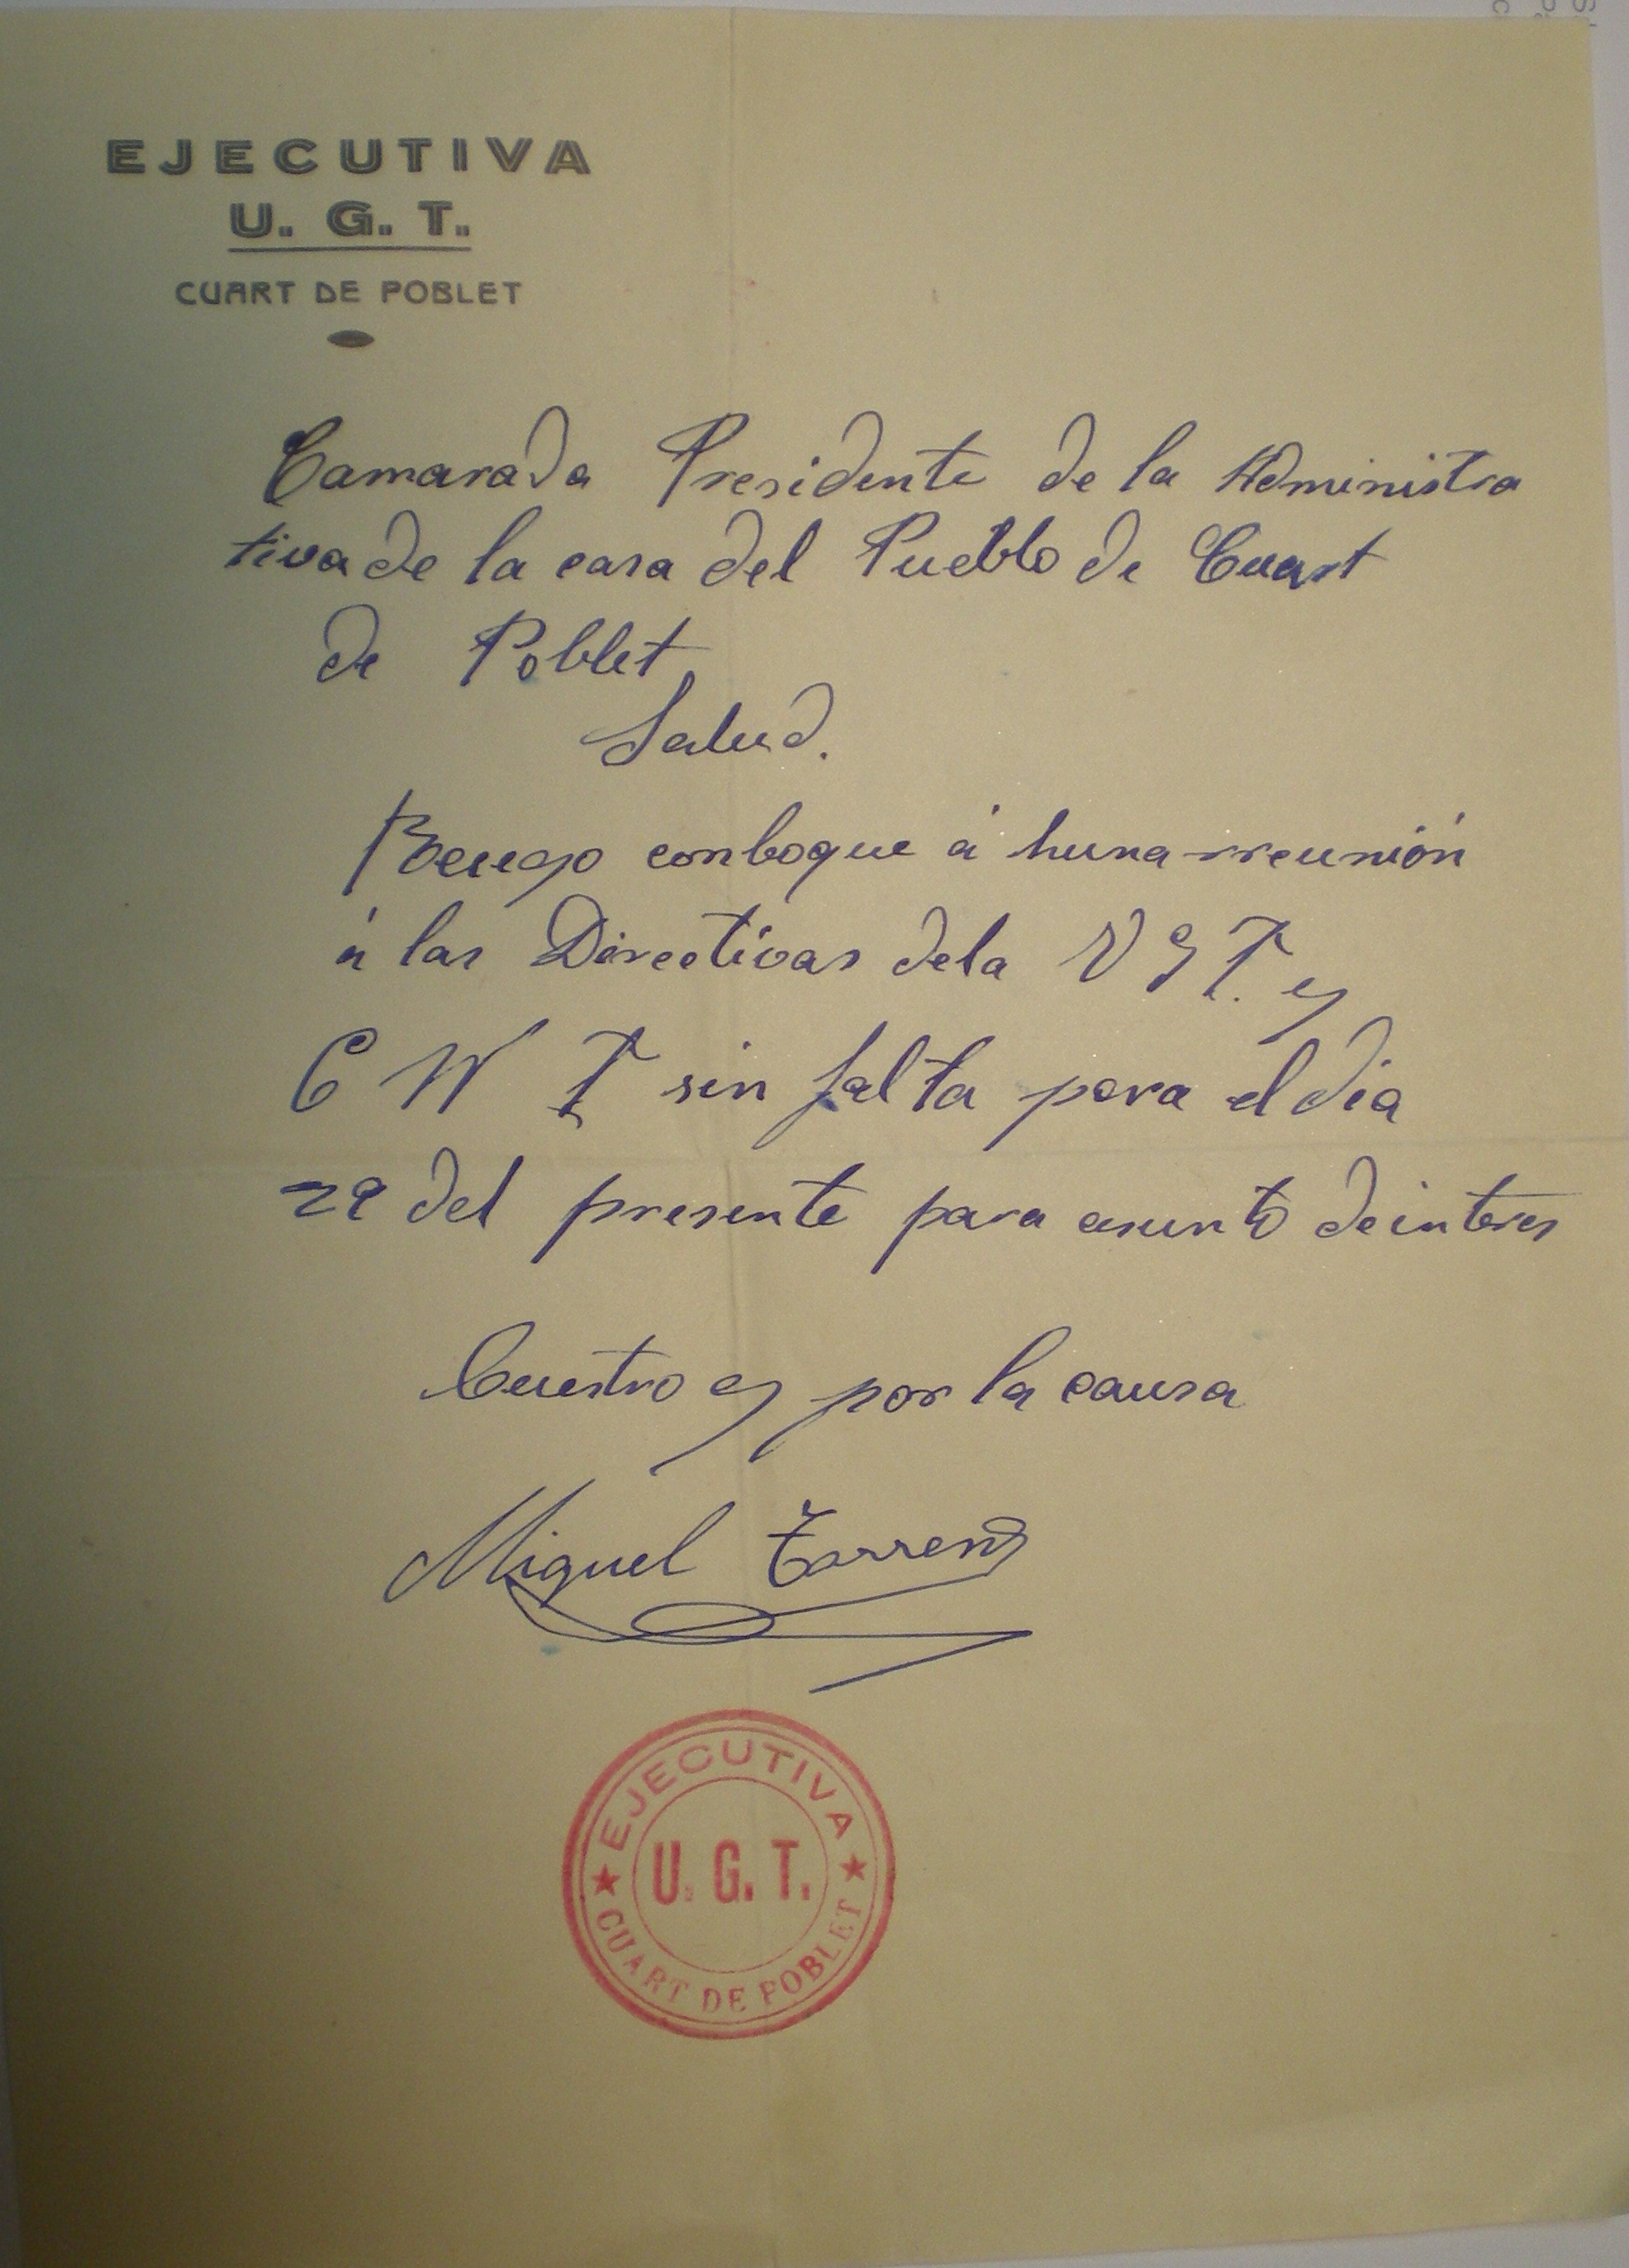 EJECUTIVA
U. G. T.
CUART DE POBLET
Camarada Presidente de la Administra
tiva de la casa del Pueblo de Cuart
de Poblet
Salud.
conboque á huna rreunión
á las Directivas dela U G T. y
C N T sin falta para el dia
29 del presente para asunto de interes
Cuestro y por la causa
Miguel
EJECUTIVA
U. G. T.
CUART DE POBLET